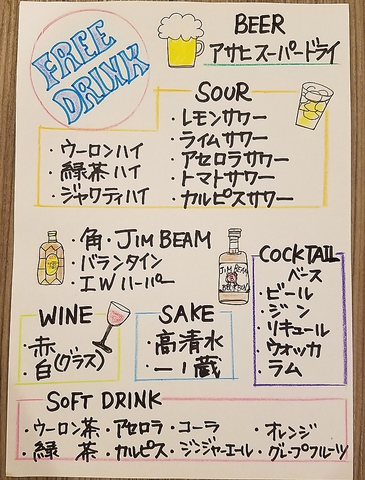 FREE
DRINK
BEER
アサヒスーパードライ
SOUR
・レモンサワー
・ライムサワー
・アセロラサワー
・トマトサワー
・カルピスサワー
・ウーロンハイ
・緑茶ハイ
・ジャワティハイ
・角・JIM BEAM
・バランタイン
・I.W.ハーパー
JIM BEAM
BOURBON
COCKTAIL
ベース
・ビール
・ジン
・リキュール
・ウォッカ
・ラム
WINE
・赤
・白(グラス)
SAKE
・高清水
・一ノ蔵
SOFT DRINK
・ウーロン茶・アセロラ・コーラ ・オレンジ
・緑 茶・カルピス・ジンジャーエール・グレープフルーツ